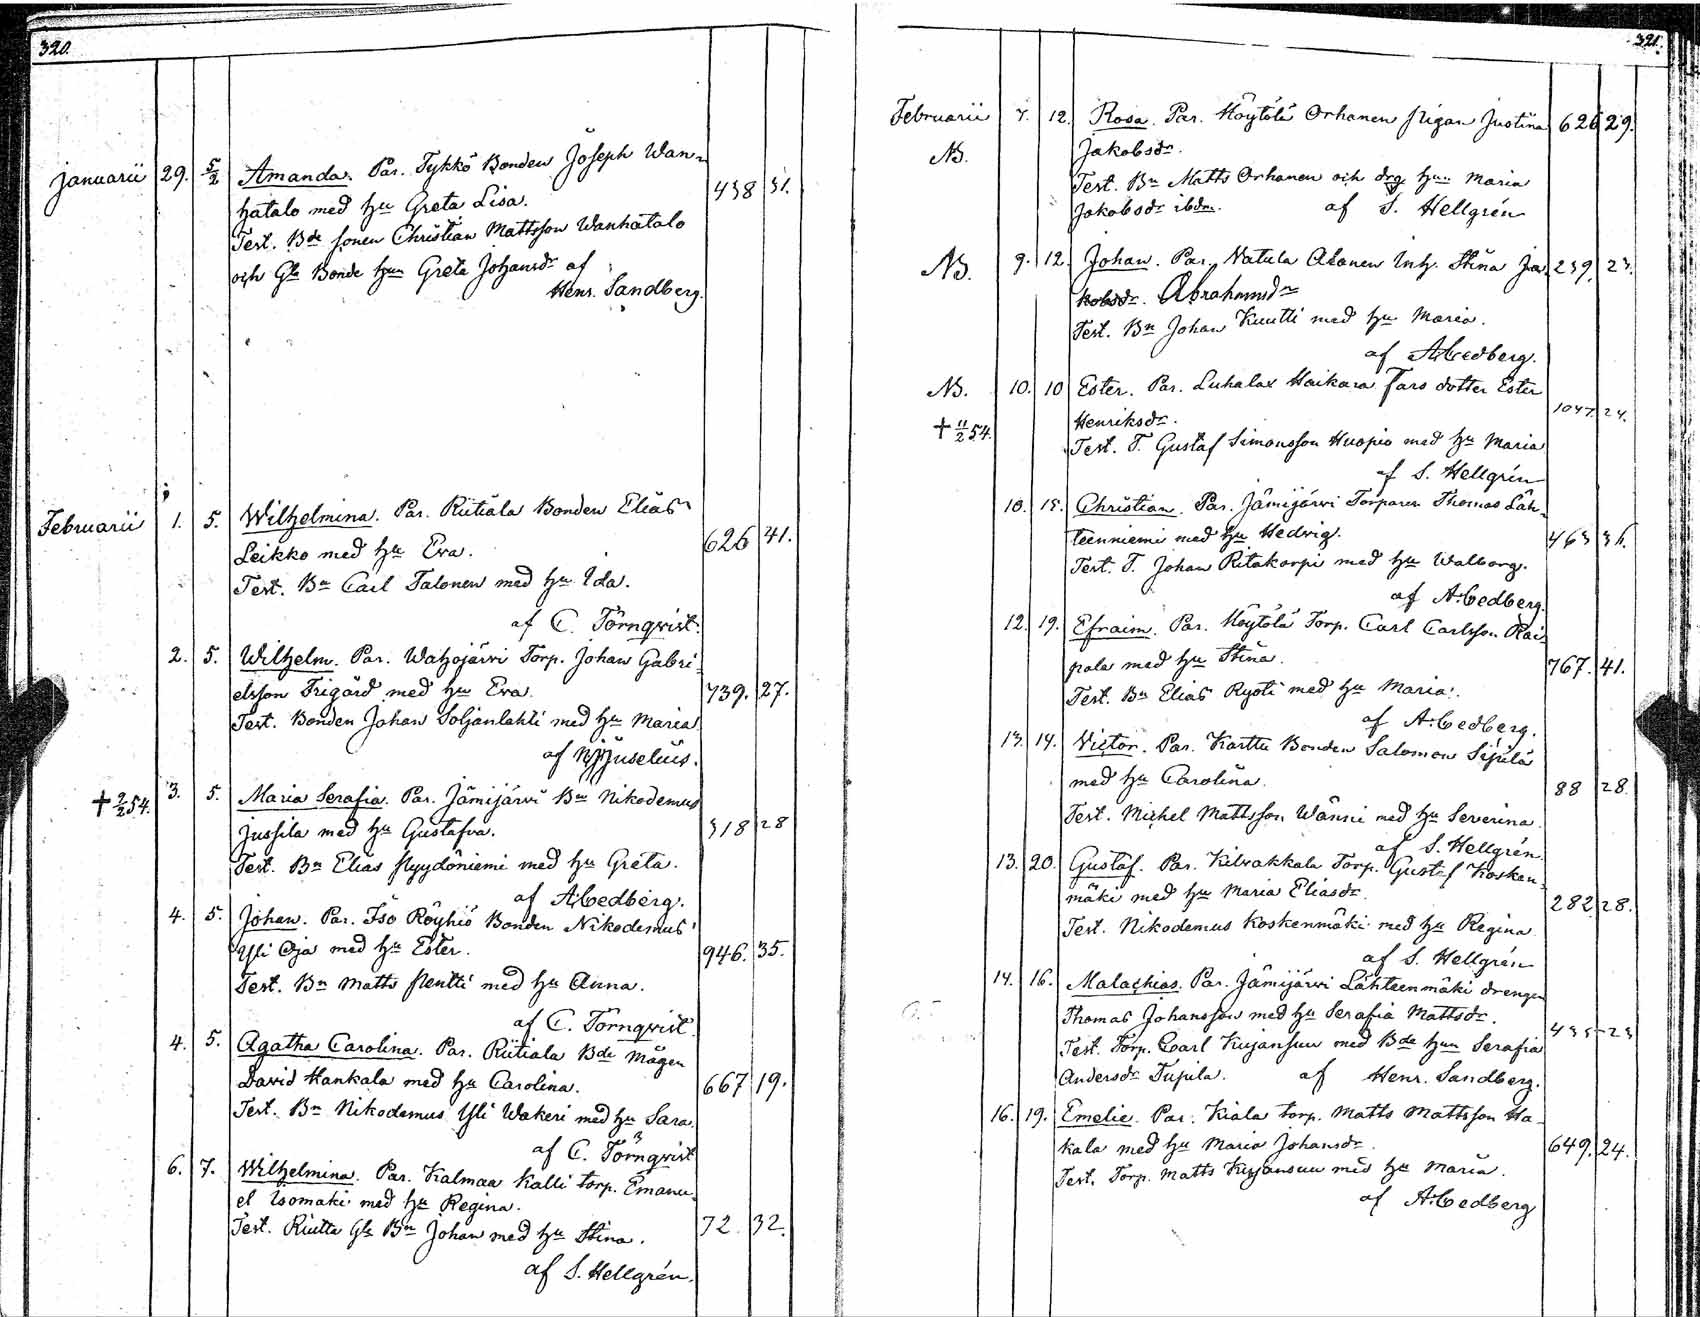 320.
Januarii 29. 5/2 Amanda. Par. Tykkö Bonden Joseph Wan-
hatalo med hu Greta Lisa. 438 31.
Test. Bde sonen Christian Mattsson Wanhatalo
och Gla Bonde hun Greta Johansdr af
Henr. Sandberg.
Februarii 1. 5. Wilhelmina. Par. Riitiala Bonden Elias
Leikko med hu Eva. 626 41.
Test. Bn Carl Talonen med hu Ida.
af C. Törnqvist.
2. 5. Wilhelm. Par. Wahojärvi Torp. Johan Gabri-
elsson Frigård med hu Eva. 739. 27.
Test. Bonden Johan Soljanlahti med hu Maria
af Juselius.
† 9/2 54. 3. 5. Maria Serafia. Par. Jämijärvi Bn Nikodemus
Jussila med hu Gustafva. 318 28
Test. Bn Elias med hu Greta.
af A. Cedberg.
4. 5. Johan. Par. Iso Röyhiö Bonden Nikodemus
Yli Oja med hu Ester. 946. 35.
Test. Bn Matts Pentti med hu Anna.
af C. Törnqvist
4. 5. Agatha Carolina. Par. Riitiala Bde mågen
David Hankala med hu Carolina. 667 19.
Test. Bn Nikodemus Yli Wakeri med hu Sara.
af C. Törnqvist
6. 7. Wilhelmina. Par. Kalmaa Kalli torp. Emanu-
el Isomäki med hu Regina.
Test. Riutta Gla Bn Johan med hu Stina. 72. 32.
af S. Hellgrén.
321.
Februarii 7. 12. Rosa. Par. Höytölä Orhanen pigan Justina 626 29.
NB. Jakobsdr.
Test. Bn Matts Orhanen och drg hun Maria
Jakobsdr ibdm. af S. Hellgrén
NB. 9. 12. Johan. Par. Natula Alanen Inh. Stina Ja- 239. 23.
kobsdr. Abrahamsdr
Test. Bn Johan Kuutti med hu Maria.
af A. Cedberg.
NB. 10. 10 Ester. Par. Luhalax Haikara Tars dotter Ester
† 11/2 54. Henriksdr. 1047. 24.
Test. T. Gustaf Simonsson Huopio med hu Maria
af S. Hellgrén
10. 15. Christian. Par. Jämijärvi Torparen Thomas Läh-
teenniemi med hu Hedvig. 463 36.
Test. T. Johan Ritakorpi med hu Walborg.
af A. Cedberg.
12. 19. Efraim. Par. Höytölä Torp. Carl Carlsson Rai-
pala med hu Stina. 767. 41.
Test. Bn Elias Ryöti med hu Maria.
af A. Cedberg.
13. 14. Victor. Par. Karttu Bonden Salomon Sipilä
med hu Carolina. 88 28.
Test. Michel Mattsson Wänni med hu Severina.
af S. Hellgrén.
13. 20. Gustaf. Par. Kilvakkala Torp. Gustaf Kosken-
mäki med hu Maria Eliasdr 282. 28.
Test. Nikodemus Koskenmäki med hu Regina
af S. Hellgrén
14. 16. Malachias. Par. Jämijärvi Lähteenmäki drengen
Thomas Johansson med hu Serafia Mattsdr. 435 23
Test. Torp. Carl Kujansuu med Bde hun Serafia
Andersdr Tujula. af Henr. Sandberg.
16. 19. Emelie. Par. Kiala torp. Matts Mattsson Ha-
kala med hu Maria Johansdr 649. 24.
Test. Torp. Matts Kujansuu med hu Maria.
af A. Cedberg